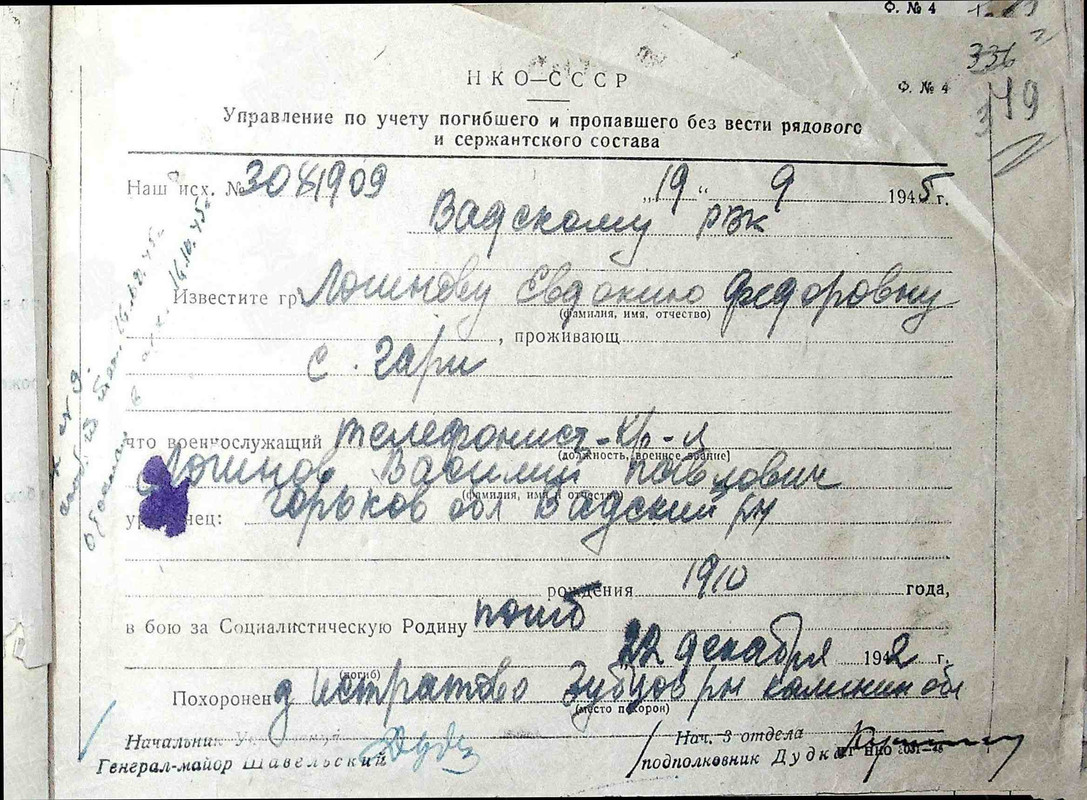 Ф. № 4
336
Ф. № 4
349
НКО—СССР
Управление по учету погибшего и пропавшего без вести рядового
и сержантского состава
Наш исх. №3081909 „19“ 9 1945 г.
Вадскому рвк
Известите гр. Логинову Евдокию Федоровну
(фамилия, имя, отчество)
, проживающ
с. Гари
что военнослужащий телефонист-кр-ц
(должность, военное звание)
Логинов Василий Павлович
(фамилия, имя и отчество)
уроженец: Горьков обл Вадский рн
рождения 1910 года,
в бою за Социалистическую Родину погиб
22 декабря 1942 г.
(погиб)
Похоронен д Истратово Зубцов рн калинин обл
(место похорон)
Начальник Управлений
Генерал-майор Шавельский
Нач. 3 отдела
подполковник Дудка